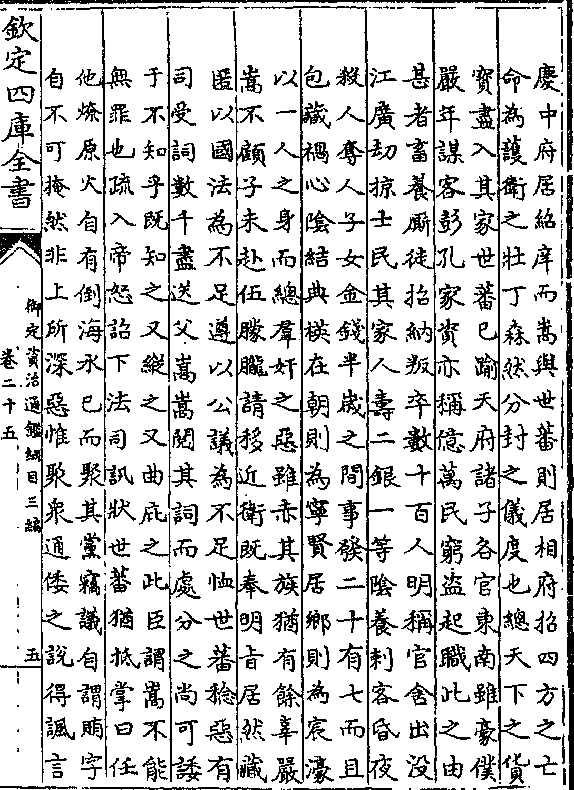 慶中府居紹庠而嵩與世蕃則居相府招四方之亡
命為護衛之壯丁森然分封之儀度也總天下之貨
寳盡入其家世蕃已踰天府諸子各官東南雖豪僕
嚴年謀客彭孔家資亦稱億萬民窮盗起職此之由
甚者畜養厮徒招納叛卒數十百人明稱官舍出没
江廣刼掠士民其家人壽二銀一等陰養刺客昏夜
殺人奪人子女金錢半歲之間事發二十有七而且
包藏禍心陰結典楧在朝則為寧賢居鄉則為宸濠
以一人之身而總羣奸之惡雖赤其族猶有餘辜嚴
嵩不顧子未赴伍朦朧請移近衛既奉明旨居然藏
匿以國法為不足遵以公議為不足恤世蕃稔惡有
司受詞數千盡送父嵩嵩閲其詞而處分之尚可諉
于不知乎既知之又縱之又曲庇之此臣謂嵩不能
無罪也疏入帝怒詔下法司訊狀世蕃猶抵掌曰任
他燎原火自有倒海水已而聚其黨竊議自謂賄字
自不可掩然非上所深惡惟聚衆通倭之說得諷言
欽定四庫全書
御定資治通鑑綱目三編
卷二十五
五